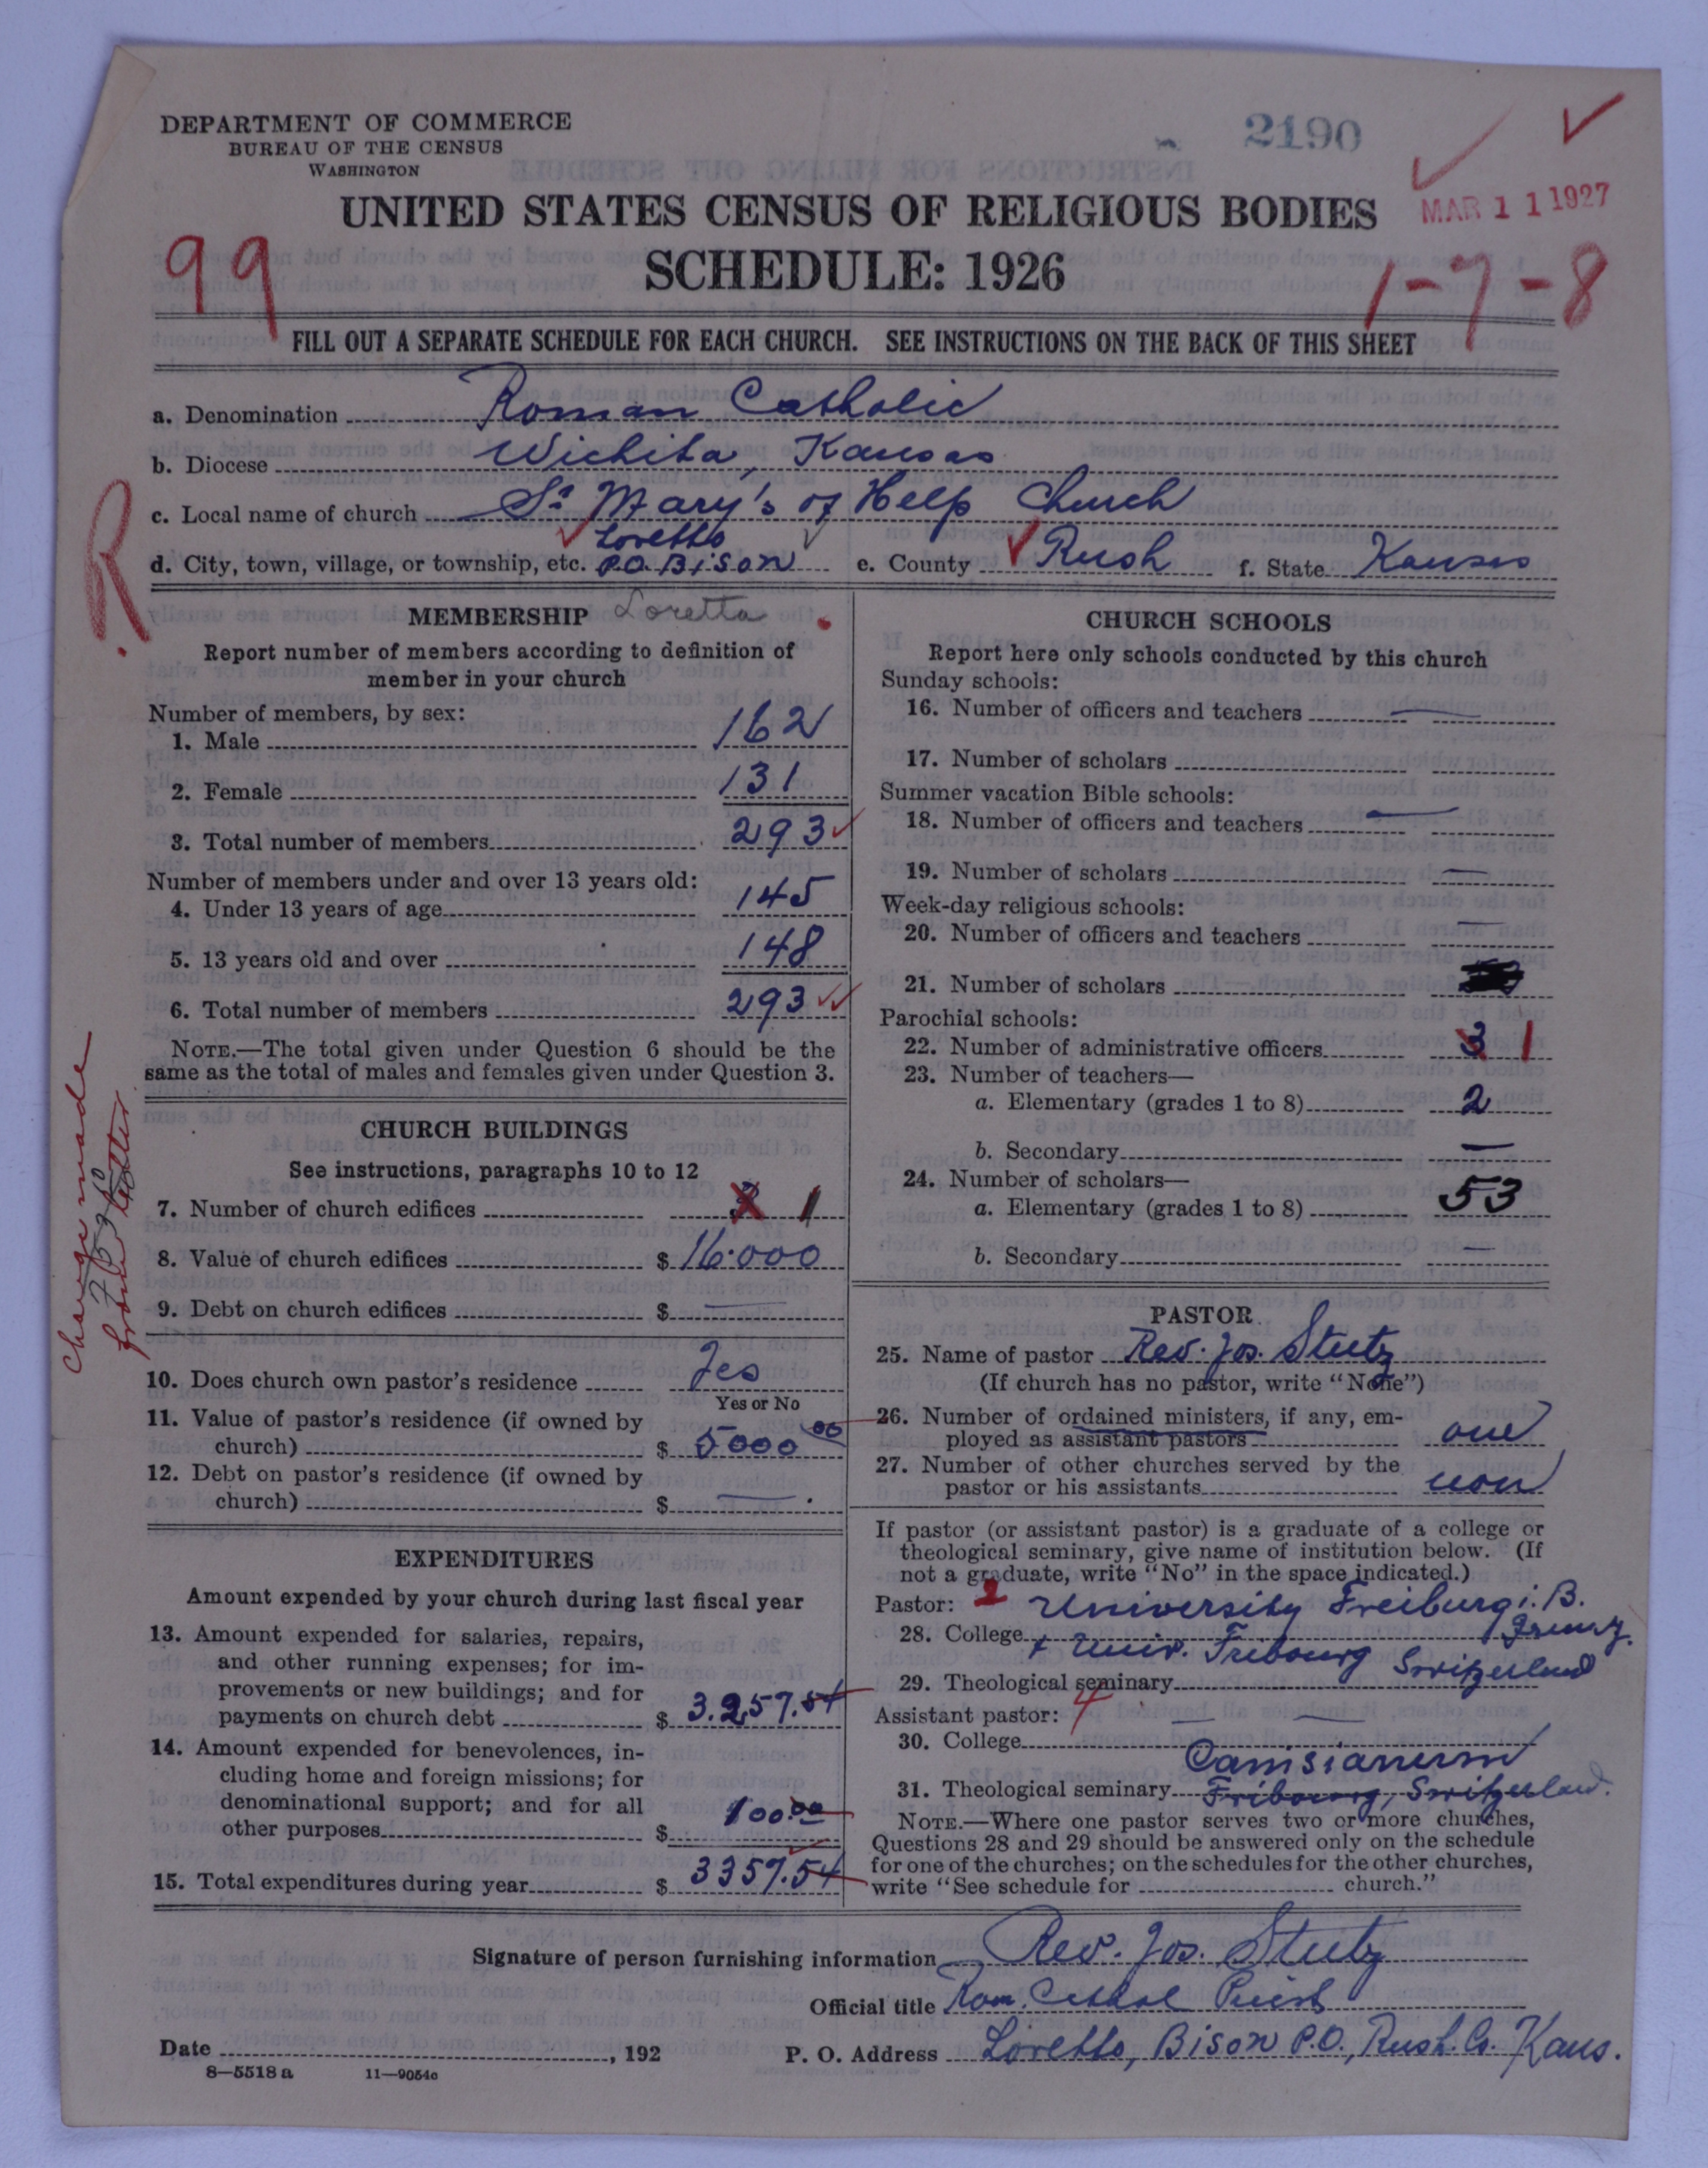 DEPARTMENT OF COMMERCE
BUREAU OF THE CENSUS
WASHINGTON
2190
MAR 11 1927
UNITED STATES CENSUS OF RELIGIOUS BODIES
SCHEDULE: 1926
99
1-7-8
FILL OUT A SEPARATE SCHEDULE FOR EACH CHURCH. SEE INSTRUCTIONS ON THE BACK OF THIS SHEET
a. Denomination Roman Catholic
b. Diocese Wichita, Kansas
c. Local name of church St Mary's of Help Church
Loretto
d. City, town, village, or township, etc. P.O. Bison e. County Rush f. State Kansas
R
MEMBERSHIP Loretta
Report number of members according to definition of
member in your church
Number of members, by sex:
1. Male 162
2. Female 131
3. Total number of members 293
Number of members under and over 13 years old:
4. Under 13 years of age 145
5. 13 years old and over 148
6. Total number of members 293
NOTE.—The total given under Question 6 should be the
same as the total of males and females given under Question 3.
CHURCH BUILDINGS
See instructions, paragraphs 10 to 12
7. Number of church edifices 1
8. Value of church edifices $ 16.000
9. Debt on church edifices $ —
10. Does church own pastor's residence Yes
Yes or No
11. Value of pastor's residence (if owned by
church) $ 5000 00
12. Debt on pastor's residence (if owned by
church) $ —
Change made
from letter
EXPENDITURES
Amount expended by your church during last fiscal year
13. Amount expended for salaries, repairs,
and other running expenses; for im-
provements or new buildings; and for
payments on church debt $ 3.257.54
14. Amount expended for benevolences, in-
cluding home and foreign missions; for
denominational support; and for all
other purposes $ 100.00
15. Total expenditures during year $ 3357.54
CHURCH SCHOOLS
Report here only schools conducted by this church
Sunday schools:
16. Number of officers and teachers —
17. Number of scholars
Summer vacation Bible schools:
18. Number of officers and teachers —
19. Number of scholars —
Week-day religious schools:
20. Number of officers and teachers —
21. Number of scholars
Parochial schools:
22. Number of administrative officers 3 1
23. Number of teachers—
a. Elementary (grades 1 to 8) 2
b. Secondary —
24. Number of scholars—
a. Elementary (grades 1 to 8) 53
b. Secondary —
PASTOR
25. Name of pastor Rev. Jos. Stutz
(If church has no pastor, write "None")
26. Number of ordained ministers, if any, em-
ployed as assistant pastors one
27. Number of other churches served by the
pastor or his assistants non
If pastor (or assistant pastor) is a graduate of a college or
theological seminary, give name of institution below. (If
not a graduate, write "No" in the space indicated.)
Pastor: University Freiburg i. B.
28. College + Univ. Fribourg Switzerland
29. Theological seminary
Assistant pastor: 4
30. College — —
Canisianum
31. Theological seminary Fribourg, Switzerland.
NOTE.—Where one pastor serves two or more churches,
Questions 28 and 29 should be answered only on the schedule
for one of the churches; on the schedules for the other churches,
write "See schedule for church."
Signature of person furnishing information Rev. Jos. Stutz
Official title Rom. Cathol Priest
Date , 192 P. O. Address Loretto, Bison P.O., Rush. Co. Kans.
8—5518 a 11—9054c